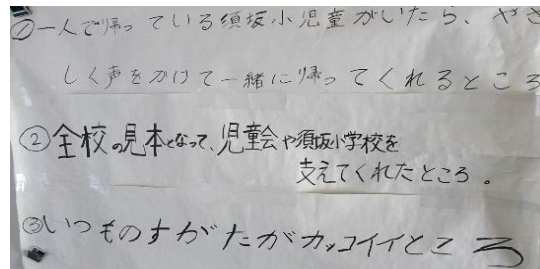 ①一人で帰っている須坂小児童がいたら、やさ
しく声をかけて一緒に帰ってくれるところ
②全校の見本となって、児童会や須坂小学校を
支えてくれたところ。
③いつものすがたがカッコイイところ